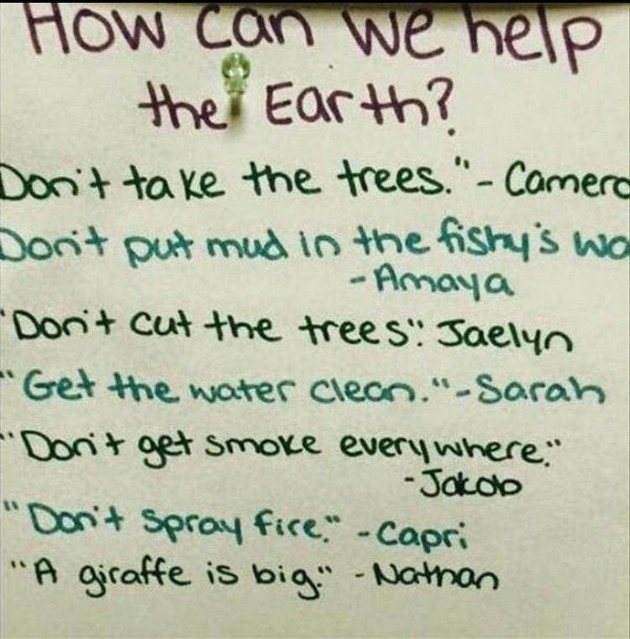 How can we help
the Earth?
Don't take the trees."-Camero
Don't put mud in the fishy's wa
-Amaya
"Don't cut the trees": Jaelyn
"Get the water clean."-Sarah
"Don't get smoke everywhere."
-Jakob
"Don't spray fire." -Capri
"A giraffe is big." -Nathan